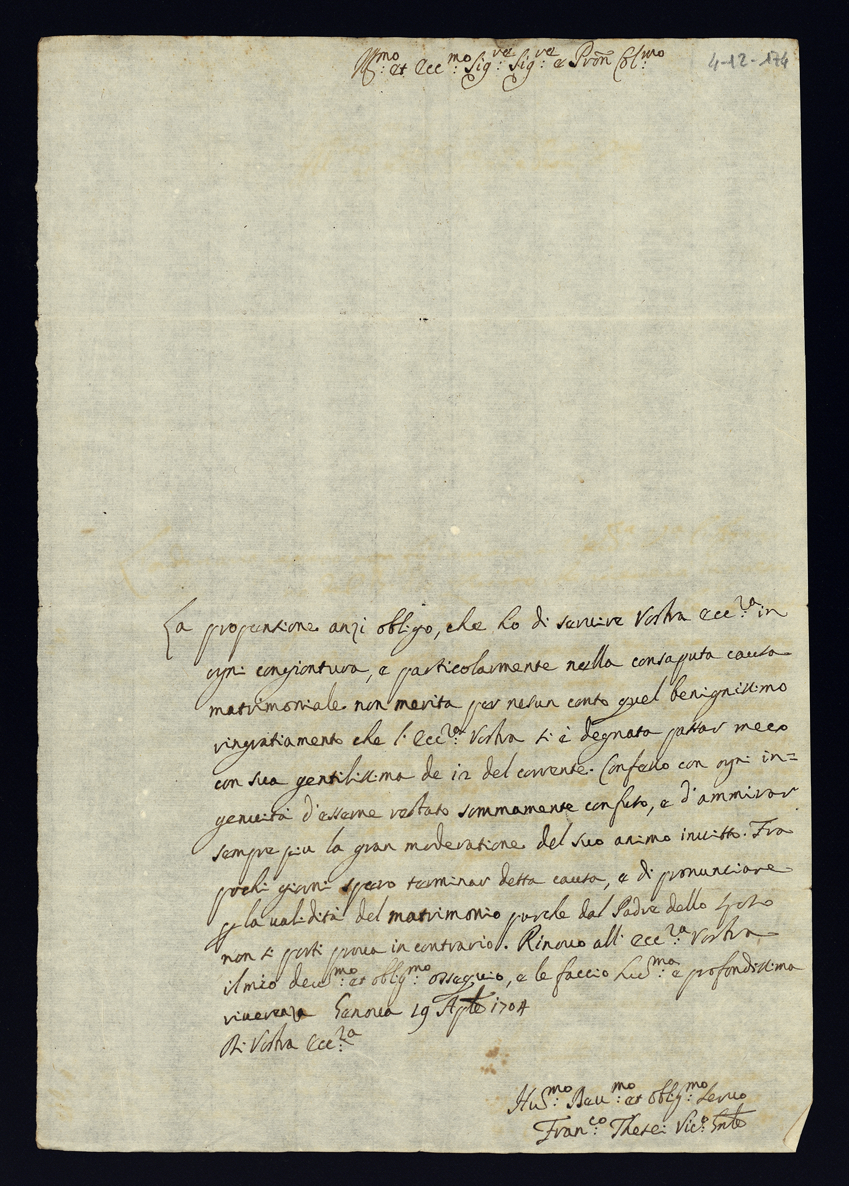 Ill.mo et Ecc.mo Sig.re Sig.re e Pron Col.mo
4-12-174
La propensione anzi obligo, che ho di servire Vostra Ecc.za in
ogni congiontura, e particolarmente nella consaputa causa
matrimoniale non merita per nesun conto quel benignissimo
ringratiamento che l'Ecc.za Vostra si è degnata passar meco
con sua gentilissima de 12 del corrente. Confesso con ogni in=
genuità d'esserne restato sommamente confuso, e d'ammirar
sempre piu la gran moderatione del suo animo invitto. Fra
pochi giorni spero terminar detta causa, e di pronunciare
p la validità del matrimonio purche dal Padre dello sposo
non si porti prova in contrario. Rinovo all' Ecc.za Vostra
il mio dev.mo et oblig.mo ossequio, e le faccio hum.ma e profondissima
riverenza Genova 19 1704
Di Vostra Ecc.za
Hum.mo Dev.mo et oblig.mo servo
Fran.co Vic.o